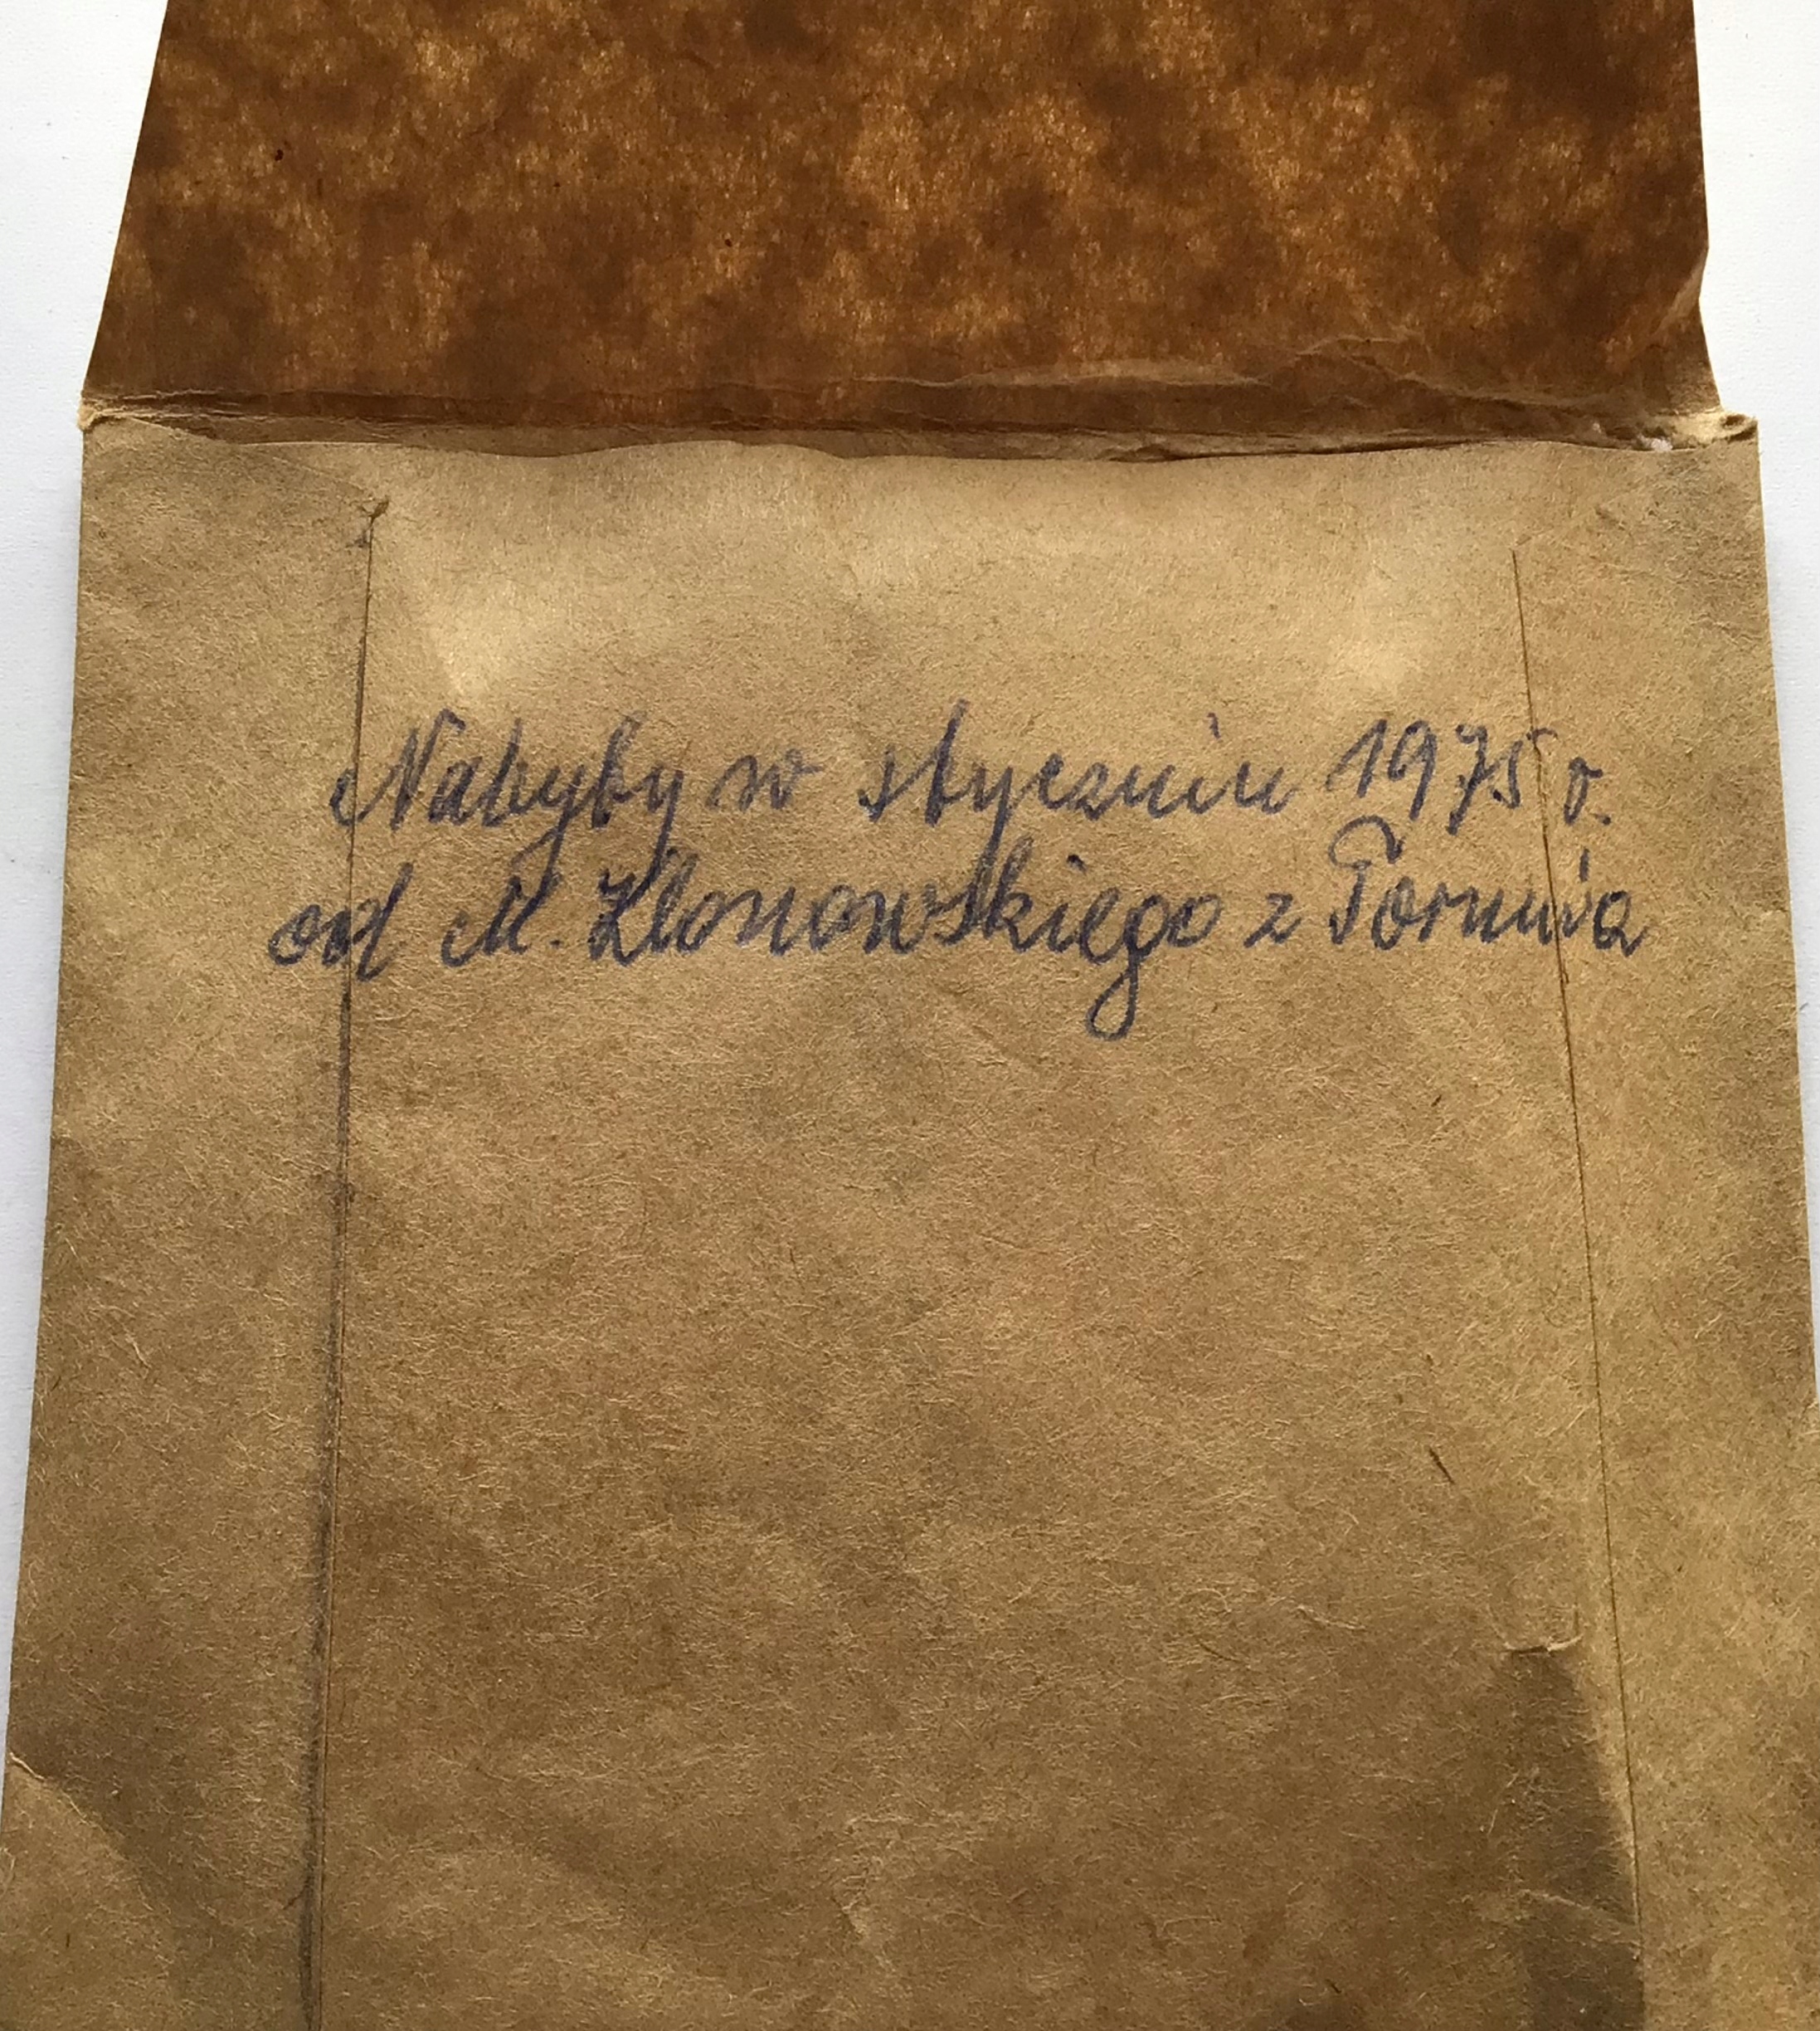 Nabyty w styczniu 1975 r.
od M. Klonowskiego z Torunia